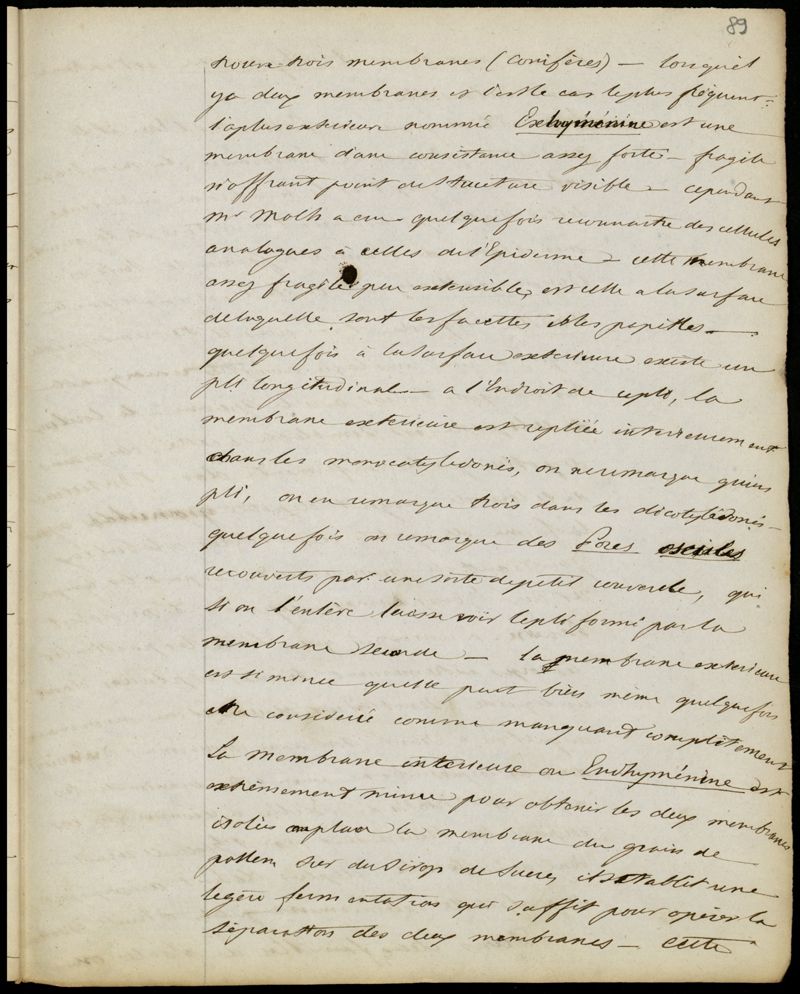 89
trouve trois membranes (conifères) — lorsqu'il
y a deux membranes et c'est le cas le plus fréquent :
la plus exterieure nommée Exhyménine est une
membrane d'une consistance assez forte — fragile
n'offrant point de structure visible — cependant
mr Mohl a cru quelquefois reconnaitre des cellules
analogues à celles de l'Epiderme — cette membrane
assez fragile peu extensible, est celle a la surface
de laquelle sont les facettes et les papilles —
quelquefois à la surface exterieure existe un
pli longitudinal — a l'Endroit de ce pli, la
membrane exterieure est repliée interieurement
dans les monocotyledonés, on ne remarque qu'un
pli, on en remarque trois dans les dicotylédonés —
quelquefois on remarque des Pores oscules
recouverts par une sorte de petit couvercle, qui
si on l'enlève laisse voir le pli formé par la
membrane seconde — la membrane exterieure
est si mince qu'elle peut bien même quelquefois
être considerée comme manquant completement
La membrane interieure ou Endhyménine est
extrêmement mince pour obtenir les deux membranes
isolées on place la membrane du grain de
pollen sur du sirop de sucre, il s'etablit une
legère fermentation qui suffit pour opérer la
séparation des deux membranes — cette